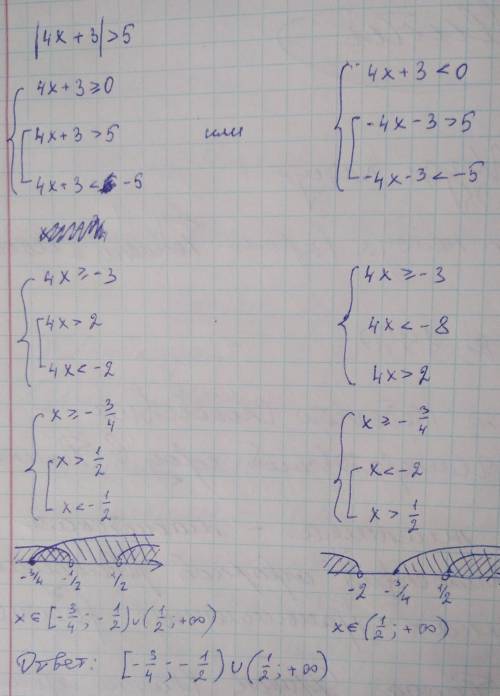 |4x + 3| > 5
4x + 3 ≥ 0
4x + 3 > 5
4x + 3 < -5
или
4x + 3 < 0
-4x - 3 > 5
-4x - 3 < -5
4x ≥ -3
4x > 2
4x < -2
4x ≥ -3
4x < -8
4x > 2
x ≥ - 3/4
x > 1/2
x < - 1/2
x ≥ - 3/4
x < -2
x > 1/2
-3/4 -1/2 1/2
-2 -3/4 1/2
x ∈ [- 3/4 ; - 1/2) ∪ (1/2 ; +∞)
x ∈ (1/2 ; +∞)
Ответ: [- 3/4 ; - 1/2) ∪ (1/2 ; +∞)